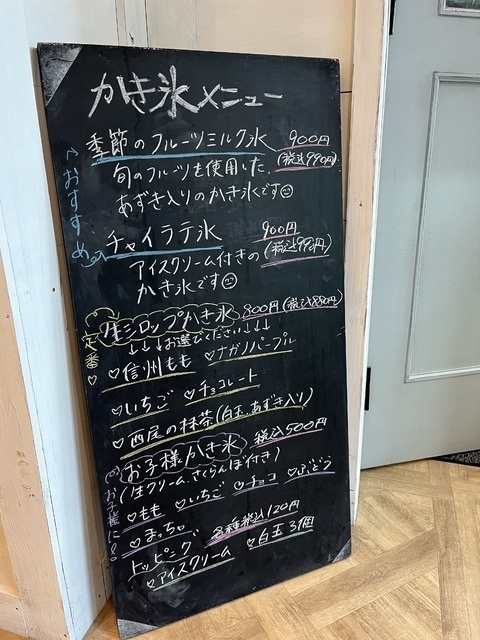 かき氷メニュー
季節のフルーツミルク氷 900円
(税込990円)
旬のフルーツを使用した、
あずき入りのかき氷です☺
おすすめ
チャイラテ氷 900円
(税込990円)
アイスクリーム付きの
かき氷です☺
定番♡
生シロップかき氷 800円(税込880円)
↓↓↓お選びください↓↓↓
♡信州もも ♡ナガノパープル
♡いちご ♡チョコレート
♡西尾の抹茶(白玉、あずき入り)
お子様に!!
お子様かき氷 税込500円
(生クリーム、さくらんぼ付き)
♡もも ♡いちご ♡チョコ ♡ぶどう
♡まっちゃ
トッピング 各種税込120円
♡アイスクリーム ♡白玉3個